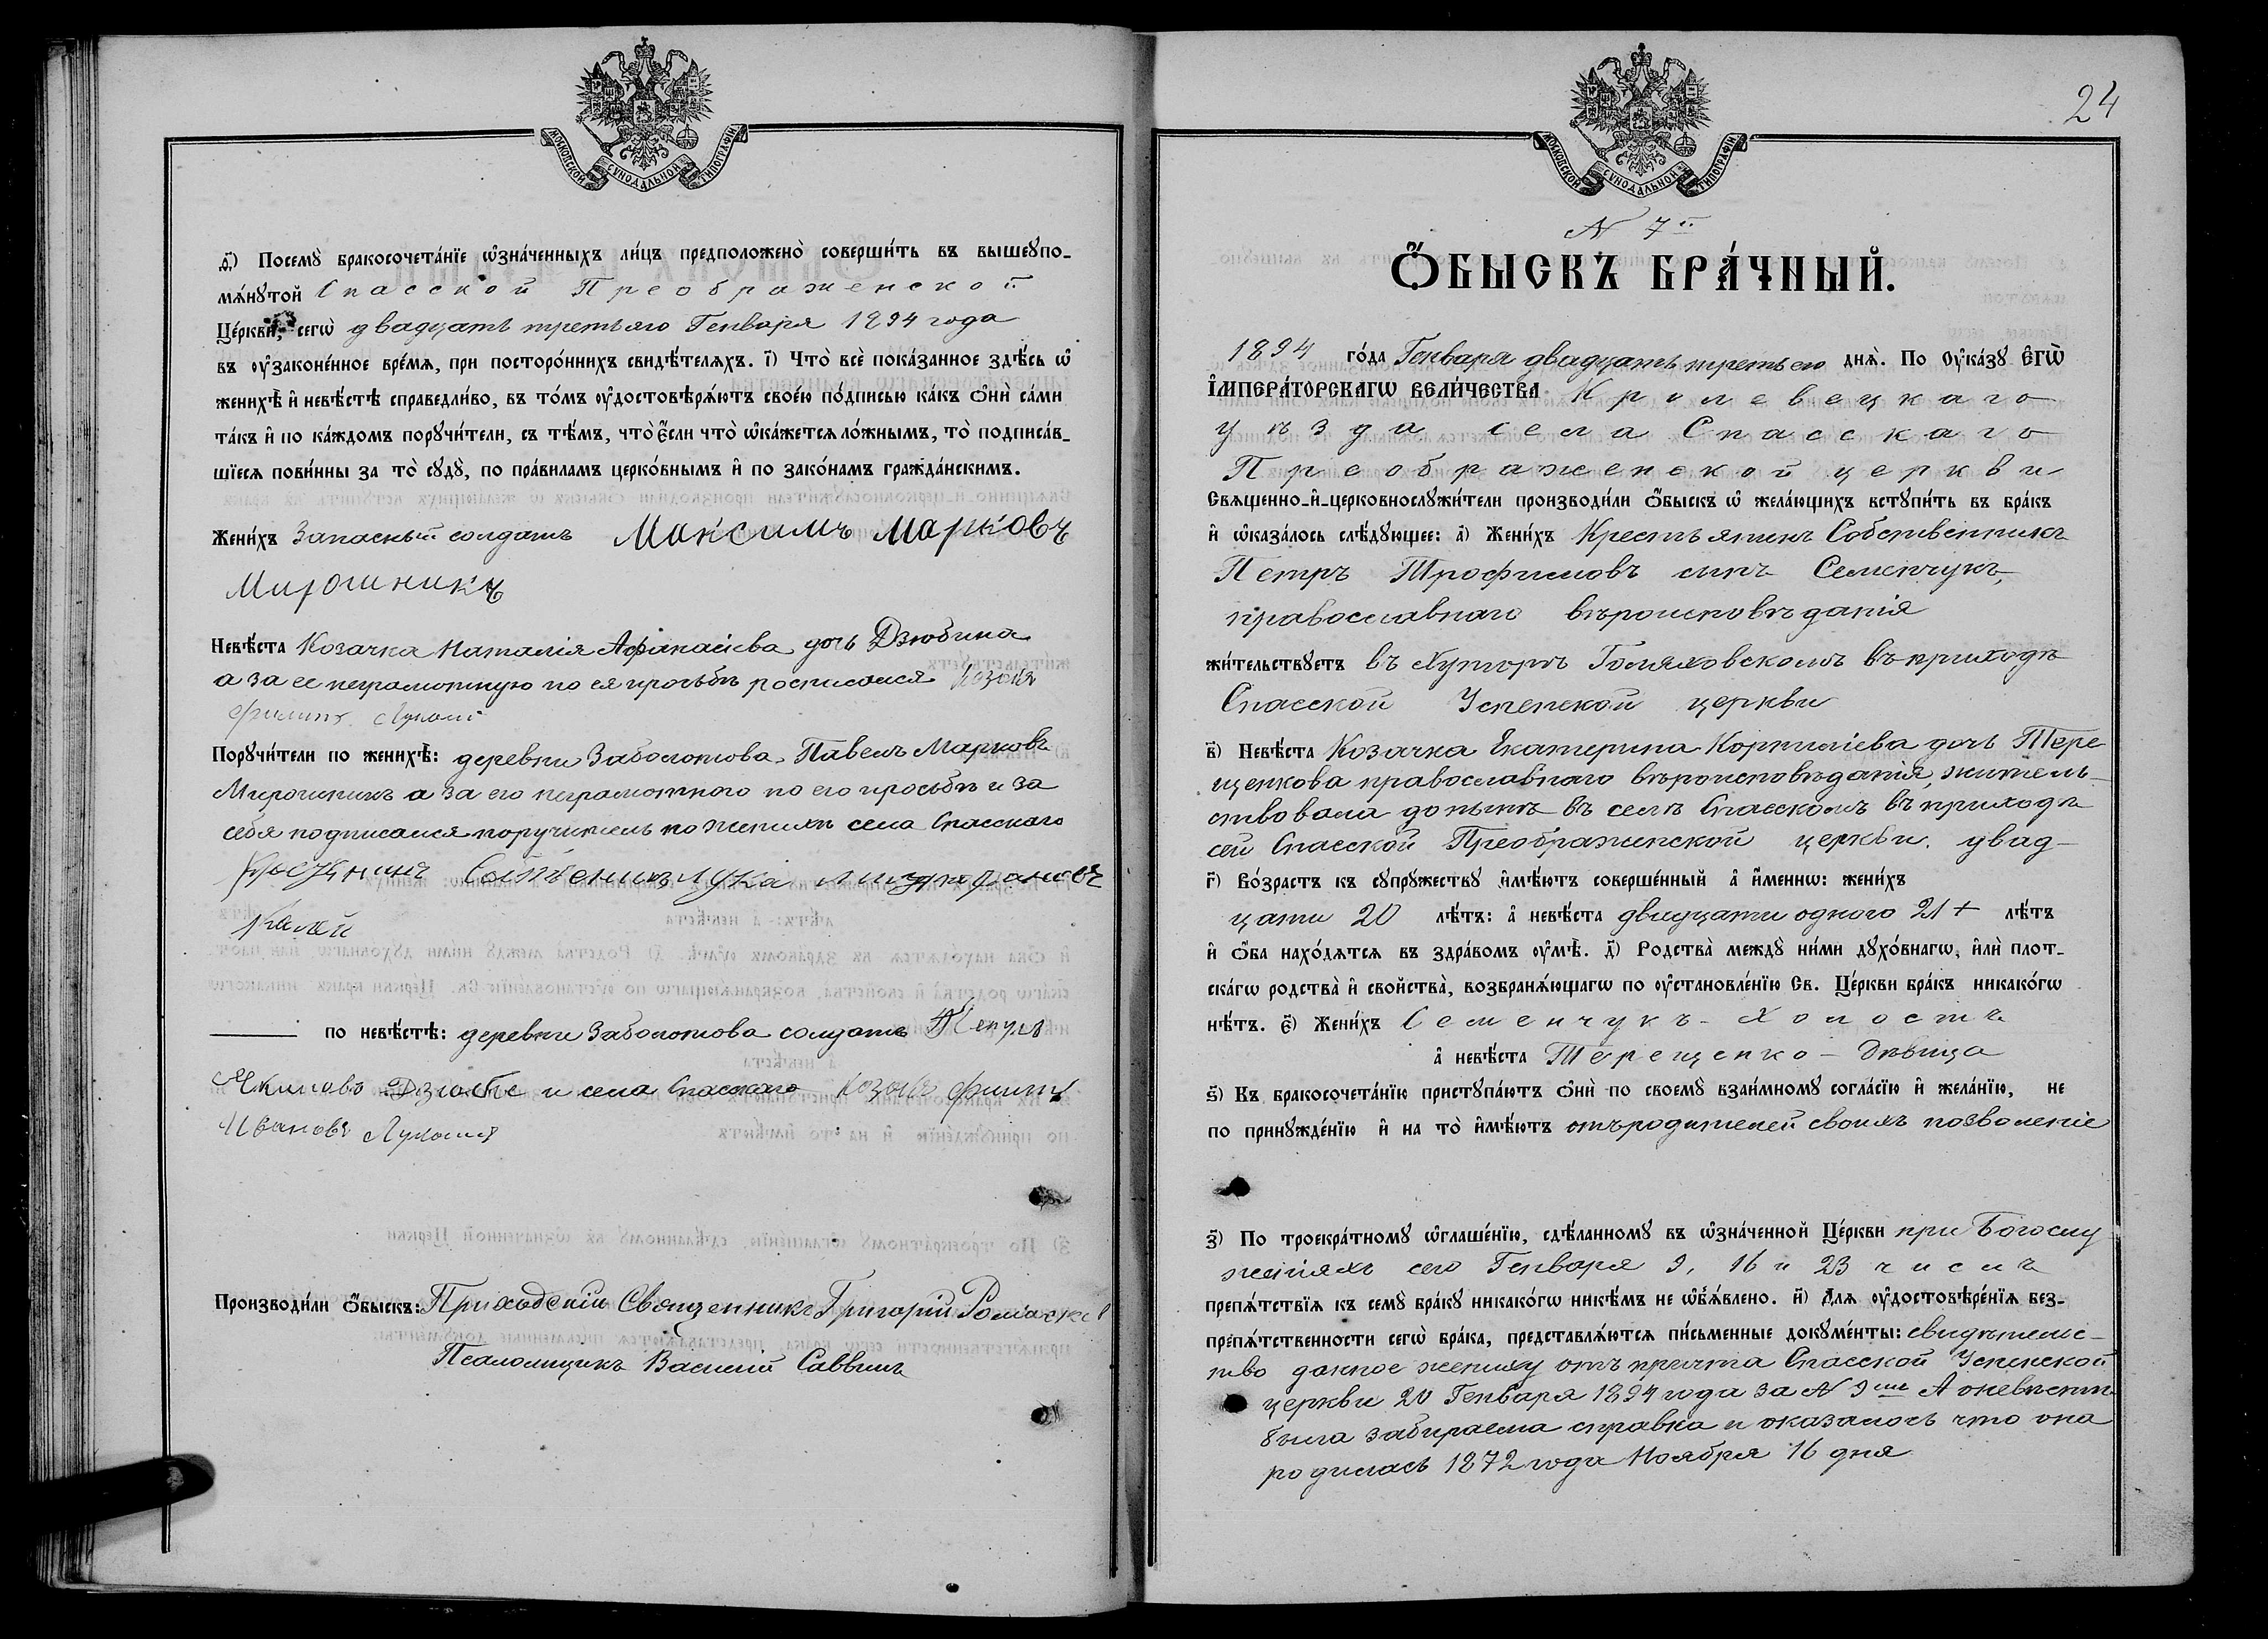 МОСКОВСКОЙ СѴНОДАЛЬНОЙ ТИПОГРАФІИ
ѳ҃) Посемꙋ̀ бракосочета́нїе ѡ҆зна́ченныхъ ли́цъ предположено̀ соверши́ть въ вышеꙋпо-
мѧ́нꙋтой Спасской Преображенской
Це́ркви, сегѡ̀ двадцать третьяго Генваря 1894 года
въ ᲂу҆законе́нное вре́мѧ, при посторо́ннихъ свидѣ́телѧхъ. і҃) Что̀ всѐ пока́занное здѣ́сь ѡ҆
женихѣ̀ и҆ невѣ́стѣ справедли́во, въ то́мъ ᲂу҆достовѣрѧ́ютъ свое́ю по́дписью ка́къ ѻ҆нѝ са́ми
та́къ и҆ по ка́ждомъ порꙋчи́тели, съ тѣ́мъ, что̀ є҆́сли что̀ ѡ҆ка́жетсѧ ло́жнымъ, то̀ подписа́в-
шїесѧ пови́нны за то̀ сꙋдꙋ̀, по пра́виламъ церко́внымъ и҆ по зако́намъ гражда́нскимъ.
Жени́хъ Запасный солдатъ Максимъ Марковъ
Мирошникъ
Невѣ́ста Козачка Наталія Афанасіева дочь Дзюбина
а за ее неграмотную по ея просьбѣ росписался Козакъ
Филипъ
Порꙋчи́тели по женихѣ̀: деревни Заболотова, Павелъ Марковъ
Мирошникъ а за его неграмотного по его просьбѣ и за
себя подписался поручитель по женихѣ села Спасского
Лука
Калей
по невѣ́стѣ: деревни Заболотова солдатъ
Дзюба и села Спасского козакъ Филипъ
Ивановъ
Производи́ли ѻ҆́быскъ: Приходскій Священникъ Григорій
Псаломщикъ Василій Саввичъ
24
МОСКОВСКОЙ СѴНОДАЛЬНОЙ ТИПОГРАФІИ
N 7й
Ѻ҆́БЫСКЪ БРА́ЧНЫЙ.
1894 го́да Генваря двадцать третьего днѧ̀. По Оу҆ка́зꙋ Є҆ГѠ̀
І҆МПЕРА́ТОРСКАГѠ ВЕЛИ́ЧЕСТВА Кролевецкаго
уѣзда села Спасскаго
Преображенской церкви
Свѧщенно-и҆-церковнослꙋжи́тели производи́ли ѻ҆́быскъ ѡ҆ жела́ющихъ встꙋпи́ть въ бра́къ
и҆ ѡ҆каза́лось слѣ́дꙋющее: а҃) Жени́хъ Крестьянинъ Собственникъ
Петръ Трофимовъ сынъ Семенчукъ,
православнаго вѣроисповѣданія
жи́тельствꙋетъ въ Хуторѣ Голяховскомъ въ приходѣ
Спасской Успенской церкви
в҃) Невѣ́ста Козачка Екатерина Корниліева дочь Тере
щенкова православнаго вѣроисповѣданія, житель-
ствовала донынѣ въ селѣ Спасскомъ въ приходѣ
сей Спасской Преображенской церкви. двад-
г҃) Во́зрастъ къ сꙋпрꙋ́жествꙋ и҆мѣ́ютъ соверше́нный а҆ и҆́меннѡ: жени́хъ
цати 20 лѣ́тъ: а҆ невѣ́ста двадцати одного 21+ лѣ́тъ
и҆ ѻ҆́ба нахо́дѧтсѧ въ здра́вомъ ᲂу҆мѣ̀. д҃) Родства̀ междꙋ̀ ни́ми дꙋхо́внагѡ, и҆лѝ плот-
ска́гѡ родства̀ и҆ свойства̀, возбранѧ́ющагѡ по ᲂу҆становле́нїю Св. Це́ркви бра́къ никако́гѡ
нѣ́тъ. є҃) Жени́хъ Семенчукъ - Холостъ
а҆ невѣ́ста Терещенко - Дѣвица
ѕ҃) Къ бракосочета́нїю пристꙋпа́ютъ ѻ҆нѝ по своемꙋ̀ взаи́мномꙋ согла́сїю и҆ жела́нїю, не
по принꙋжде́нїю и҆ на то̀ и҆мѣ́ютъ отъ родителей своихъ позволеніе
з҃) По троекра́тномꙋ ѡ҆глаше́нїю, сдѣ́ланномꙋ въ ѡ҆зна́ченной Це́ркви при Богослу
женіяхъ сего Генваря 9, 16 и 23 числъ
препѧ́тствїѧ къ семꙋ̀ бра́кꙋ никако́гѡ никѣ́мъ не ѡ҆б̾ѧ́влено. и҃) Длѧ ᲂу҆достовѣре́нїѧ без-
препѧ́тственности сегѡ̀ бра́ка, представлѧ́ютсѧ пи́сьменные докꙋме́нты: свидѣтельс-
тво данное жениху отъ причта Спасской Успенской
церкви 20 Генваря 1894 года за N 9мъ А о невѣстѣ
была забираема справка и оказалось что она
родилась 1872 года Ноября 16 дня